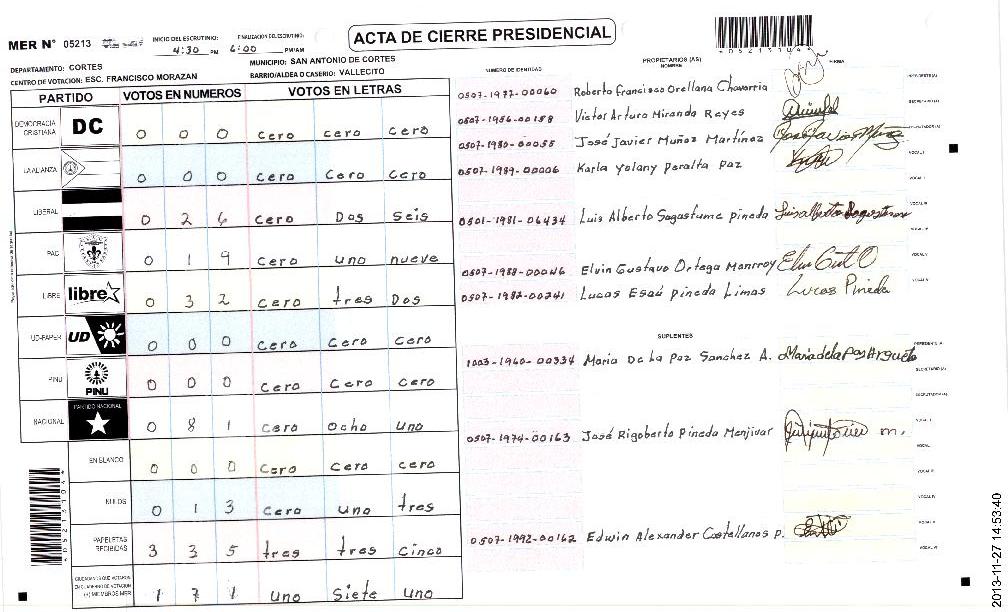 ACTA DE CIERRE PRESIDENCIAL
MER N° 05213
INICIO DEL ESCRUTINIO: 4:30 PM
FINALIZACIÓN DEL ESCRUTINIO: 6:00 PM/AM
DEPARTAMENTO: CORTES
MUNICIPIO: SAN ANTONIO DE CORTES
CENTRO DE VOTACION: ESC. FRANCISCO MORAZAN
BARRIO/ALDEA O CASERIO: VALLECITO
PARTIDO VOTOS EN NUMEROS VOTOS EN LETRAS
DEMOCRACIA CRISTIANA DC 0 0 0 cero cero cero
LA ALIANZA 0 0 0 cero Cero Cero
LIBERAL 0 2 6 cero Dos Seis
PAC 0 1 9 cero uno nueve
LIBRE libre 0 3 2 cero tres Dos
UD-FAPER UD 0 0 0 cero Cero Cero
PINU PINU 0 0 0 cero Cero Cero
NACIONAL PARTIDO NACIONAL 0 8 1 cero Ocho Uno
EN BLANCO 0 0 0 Cero Cero cero
NULOS 0 1 3 Cero uno tres
PAPELETAS RECIBIDAS 3 3 5 tres tres Cinco
CIUDADANOS QUE VOTARON EN CUADERNO DE VOTACION (+) MIEMBROS MER 1 7 1 Uno Siete uno
NUMERO DE IDENTIDAD PROPIETARIOS (AS) NOMBRE FIRMA
0507-1977-00060 Roberto Francisco Orellana Chavarria
0507-1986-00158 Victor Arturo Miranda Reyes
0507-1980-00055 José Javier Muñoz Martínez
0507-1989-00006 Karla Yolany Peralta Paz
0501-1981-06434 Luis Alberto Sagastume pineda
0507-1988-00046 Elvin Gustavo Ortega Monrroy
0507-1982-00241 Lucas Esaú pineda Limas Lucas Pineda
SUPLENTES
1003-1960-00334 Maria De la Paz Sanchez A.
0507-1974-00163 José Rigoberto Pineda Menjivar
0507-1992-00162 Edwin Alexander Castellanos p.
2013-11-27 14:53:40